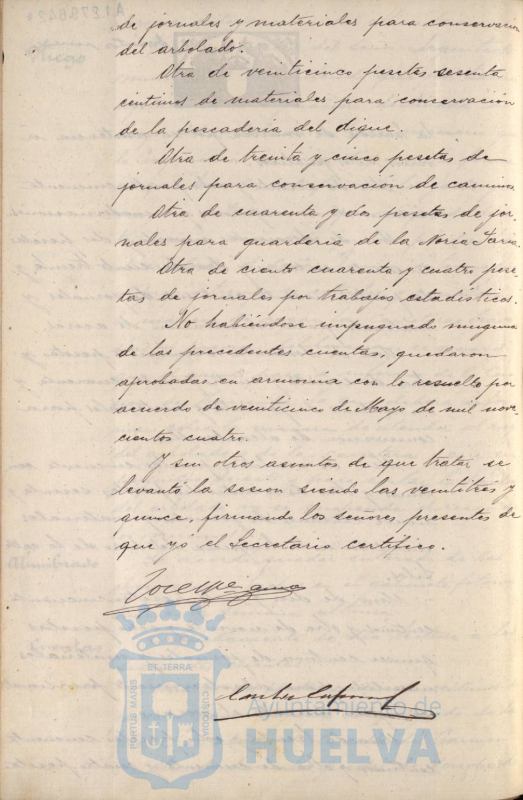 de jornales y materiales para conservacion
del arbolado.
Otra de veinticinco pesetas sesenta
centimos de materiales para conservación
de la pescaderia del dique.
Otra de treinta y cinco pesetas de
jornales para conservacion de caminos.
Otra de cuarenta y dos pesetas de jor-
nales para guarderia de la Noria
Otra de ciento cuarenta y cuatro pese-
tas de jornales por trabajos estadisticos.
No habiéndose impugnado ninguna
de las precedentes cuentas, quedaron
aprobadas en armonia con lo resuelto por
acuerdo de veinticinco de Mayo de mil nove-
cientos cuatro.
Y sin otros asuntos de que tratar se
levantó la sesion siendo las veintitres y
quince, firmando los señores presentes de
que yó el Secretario certifico.
PORTUS MARIS
ET TERRÆ
CUSTODIA
Ayuntamiento de
HUELVA